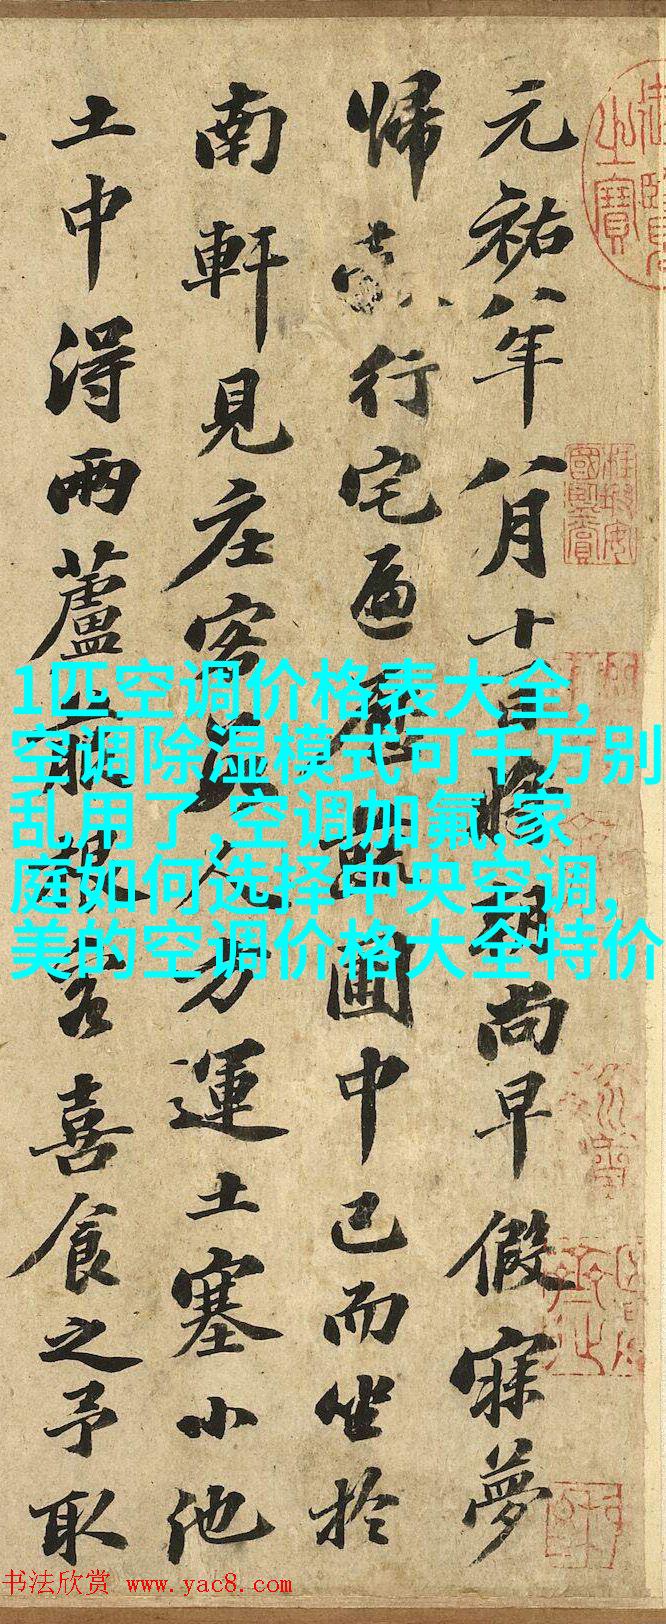 元祐八年八月十一日將朝尚早假寐夢
歸行宅遍歷蔬圃中已而坐於
南軒見庄客數人方運土塞小池
土中得兩蘆菔根客喜食之予取
1匹空调价格表大全,
空调除湿模式可千万别
乱用了,空调加氟,家
庭如何选择中央空调,
美的空调价格大全特价
书法欣赏 www.yac8.com